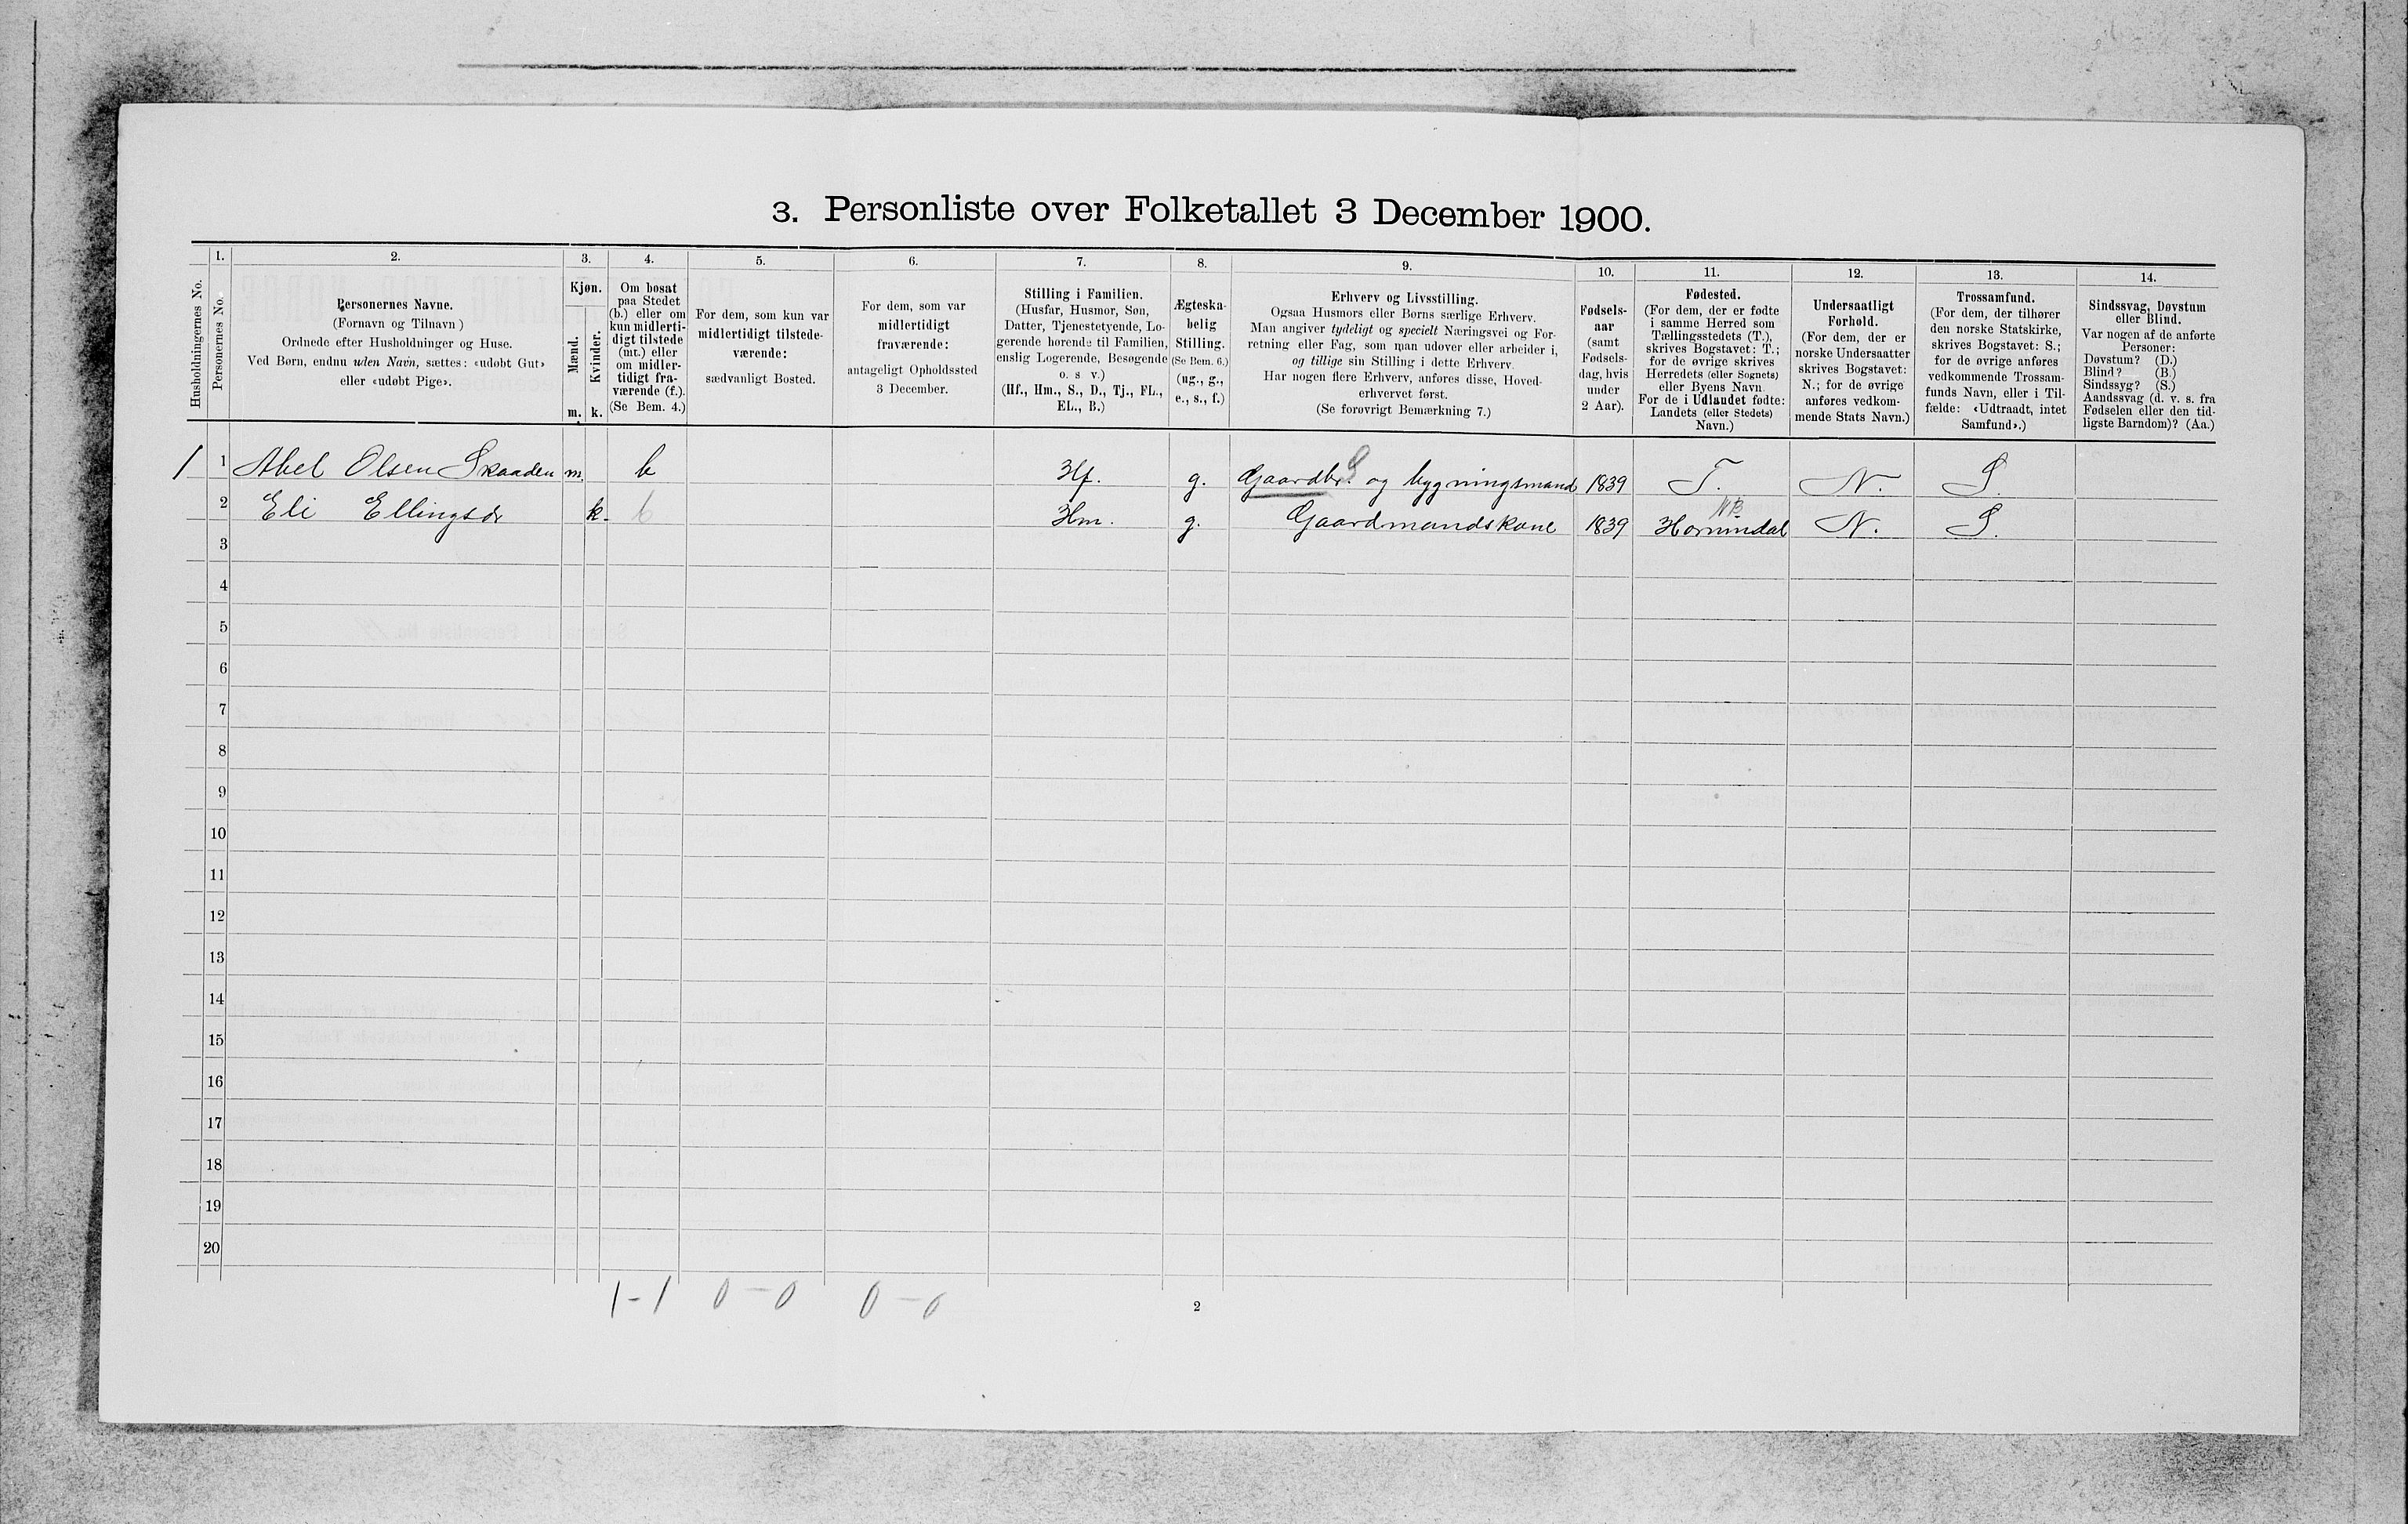 3. Personliste over Folketallet 3 December 1900.
1. 2. 3. 4. 5. 6. 7. 8. 9. 10. 11. 12. 13. 14.
Husholdningernes No.
Personernes No.
Personernes Navne.
(Fornavn og Tilnavn)
Ordnede efter Husholdninger og Huse.
Ved Børn, endnu uden Navn, sættes: «udøbt Gut»
eller «udøbt Pige».
Kjøn.
Mænd.
Kvinder.
m. k.
Om bosat
paa Stedet
(b.) eller om
kun midlerti-
digt tilstede
(mt.) eller
om midler-
tidigt fra-
værende (f.).
(Se Bem. 4.)
For dem, som kun var
midlertidigt tilstede-
værende:
sædvanligt Bosted.
For dem, som var
midlertidigt
fraværende:
antageligt Opholdssted
3 December.
Stilling i Familien.
(Husfar, Husmor, Søn,
Datter, Tjenestetyende, Lo-
gerende hørende til Familien,
enslig Logerende, Besøgende
o. s. v.)
(Hf., Hm., S., D., Tj., FL.,
EL., B.)
Ægteska-
belig
Stilling.
(Se Bem. 6.)
(ug., g.,
e., s., f.)
Erhverv og Livsstilling.
Ogsaa Husmors eller Børns særlige Erhverv.
Man angiver tydeligt og specielt Næringsvei og For-
retning eller Fag, som man udøver eller arbeider i,
og tillige sin Stilling i dette Erhverv.
Har nogen flere Erhverv, anføres disse, Hoved-
erhvervet først.
(Se forøvrigt Bemærkning 7.)
Fødsels-
aar
(samt
Fødsels-
dag, hvis
under
2 Aar).
Fødested.
(For dem, der er fødte
i samme Herred som
Tællingsstedets (T.),
skrives Bogstavet: T.;
for de øvrige skrives
Herredets (eller Sognets)
eller Byens Navn.
For de i Udlandet fødte:
Landets (eller Stedets)
Navn.)
Undersaatligt
Forhold.
(For dem, der er
norske Undersaatter
skrives Bogstavet:
N.; for de øvrige
anføres vedkom-
mende Stats Navn.)
Trossamfund.
(For dem, der tilhører
den norske Statskirke,
skrives Bogstavet: S.;
for de øvrige anføres
vedkommende Trossam-
funds Navn, eller i Til-
fælde: «Udtraadt, intet
Samfund».)
Sindssvag, Døvstum
eller Blind.
Var nogen af de anførte
Personer:
Døvstum? (D.)
Blind? (B.)
Sindssyg? (S.)
Aandssvag (d. v. s. fra
Fødselen eller den tid-
ligste Barndom)? (Aa.)
1 1 Abel Olsen Skaaden m. b Hf. g. Gaardbr. S og bygningsmand 1839 T. N. S.
2 Eli Ellingsdr k. b Hm. g. Gaardmandskone 1839 Hornindal NB N. S.
3
4
5
6
7
8
9
10
11
12
13
14
15
16
17
18
19
20
1-1 0-0 0-0
2